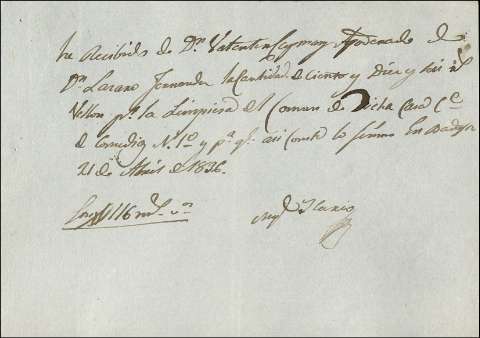 he Recibido de Dn. Valentin Cepmor Apoderado de
Dn. Lazaro Fernandez la Cantidad de Ciento y Diez y Seis rs.
Vellon pr. la Limpieza del Comun de Dicha Casa Ce.
de Comedias N. 1o. y pa. qe. asi Conste lo firmo En Badajoz
21 de Abril de 1836.
Son 116 rs. vn.